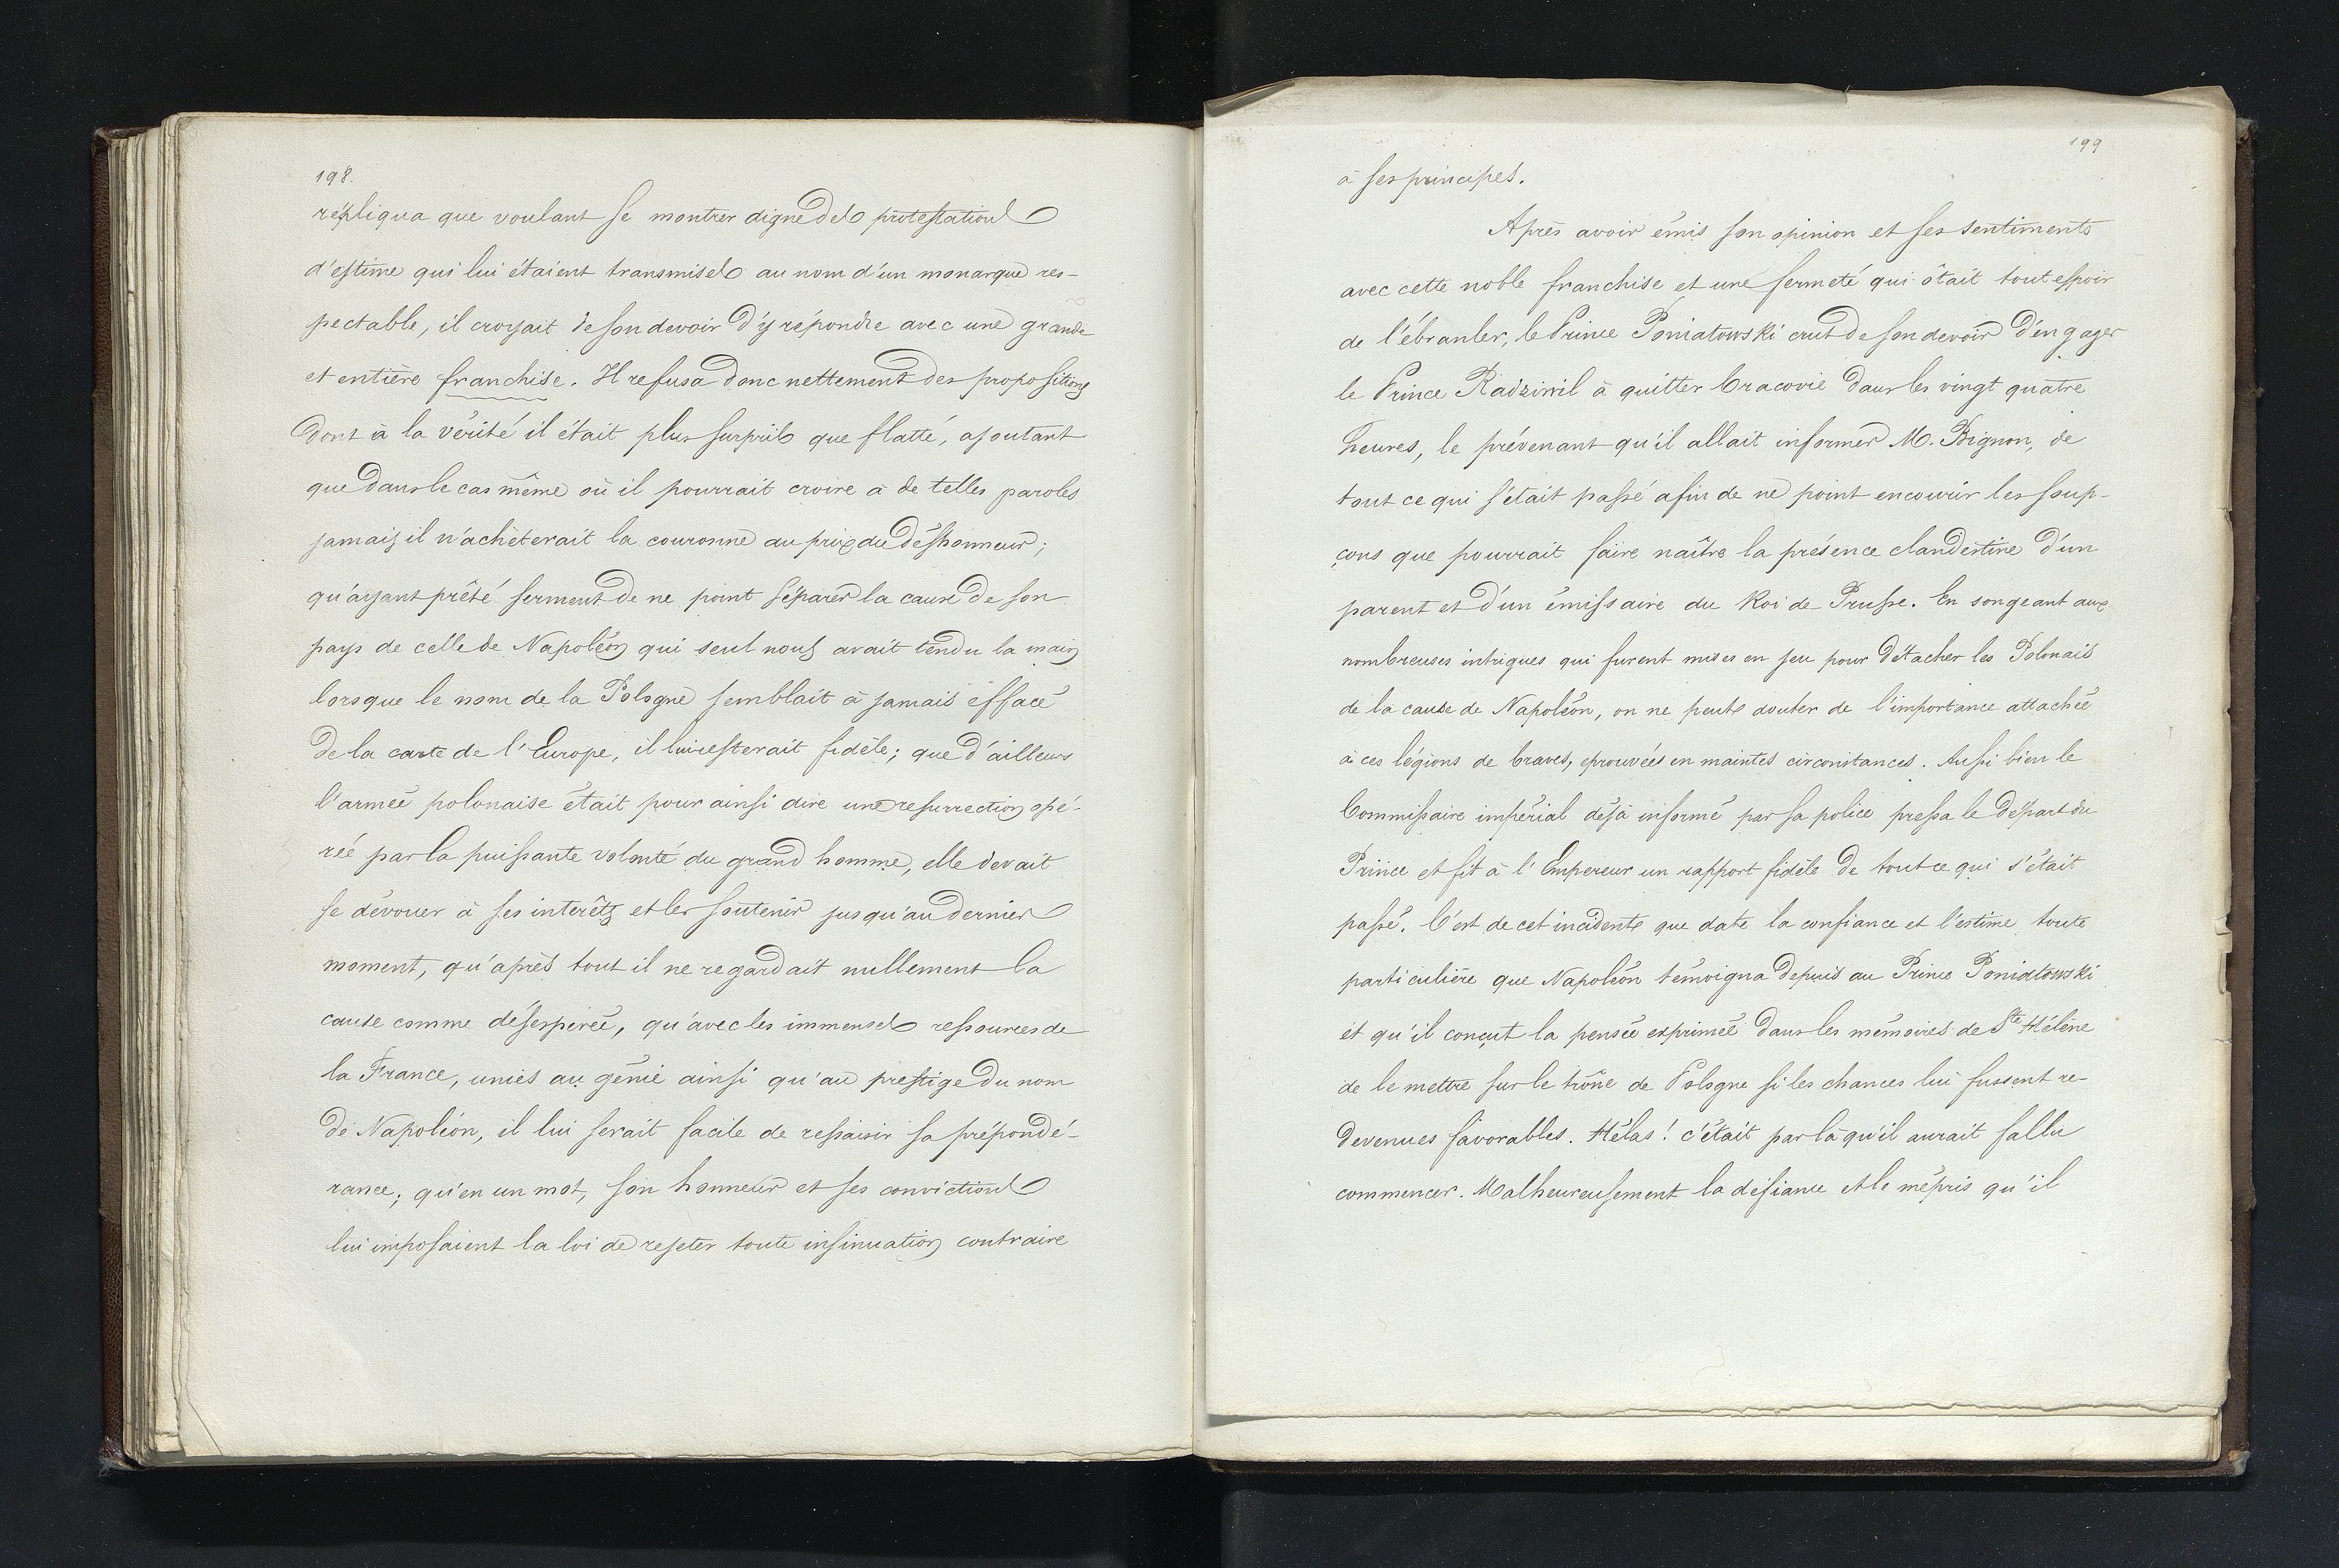 198.
répliqua que voulant se montrer digne des protestations
d'estime qui lui étaient transmises au nom d'un monarque res-
pectable, il croyait de son devoir d'y répondre avec une grande
et entière franchise. Il refusa donc nettement des propositions
dont à la vérité il était plus surpris que flatté, ajoutant
que dans le cas même où il pourrait croire à de telles paroles
jamais il n'achèterait la couronne au prix du déshonneur;
qu'ayant prêté serment de ne point séparer la cause de son
pays de celle de Napoléon qui seul nous avait tendu la main
lorsque le nom de la Pologne semblait à jamais effacé
de la carte de l'Europe, il lui resterait fidèle; que d'ailleurs
l'armée polonaise était pour ainsi dire une resurrection opé-
rée par la puissante volonté du grand homme, elle devait
se dévouer à ses interêts et les soutenir jusqu'au dernier
moment, qu'après tout il ne regardait nullement la
cause comme désesperée, qu'avec les immenses ressources de
la France, unies au génie ainsi qu'au prestige du nom
de Napoléon, il lui serait facile de ressaisir sa prépondé-
rance; qu'en un mot, son honneur et ses convictions
lui imposaient la loi de rejeter toute insinuation contraire
199
à ses principes.
Après avoir émis son opinion et ses sentiments
avec cette noble franchise et une fermeté qui ôtait tout espoir
de l'ébranler, le Prince Poniatowski crut de son devoir d'engager
le Prince Radziwil à quitter Cracovie dans les vingt quatre
heures, le prévenant qu'il allait informer M. Bignon, de
tout ce qui s'était passé afin de ne point encourir les soup-
çons que pourrait faire naître la présence clandestine d'un
parent et d'un émissaire du Roi de Prusse. En songeant aux
nombreuses intrigues qui furent mises en jeu pour détacher les Polonais
de la cause de Napoléon, on ne peut douter de l'importance attachée
à ces légions de braves, eprouvées en maintes circonstances. Aussi bien le
Commissaire impérial déjà informé par sa police pressa le départ du
Prince et fit à l'Empereur un rapport fidèle de tout ce qui s'était
passé. C'est de cet incident que date la confiance et l'estime toute
particulière que Napoléon témoigna depuis au Prince Poniatowski
et qu'il conçut la pensée exprimée dans les mémoires de Ste Hélène
de le mettre sur le trône de Pologne si les chances lui fussent re-
devenues favorables. Hélas! c'était par là qu'il aurait fallu
commencer. Malheureusement la défiance et le mépris qu'il